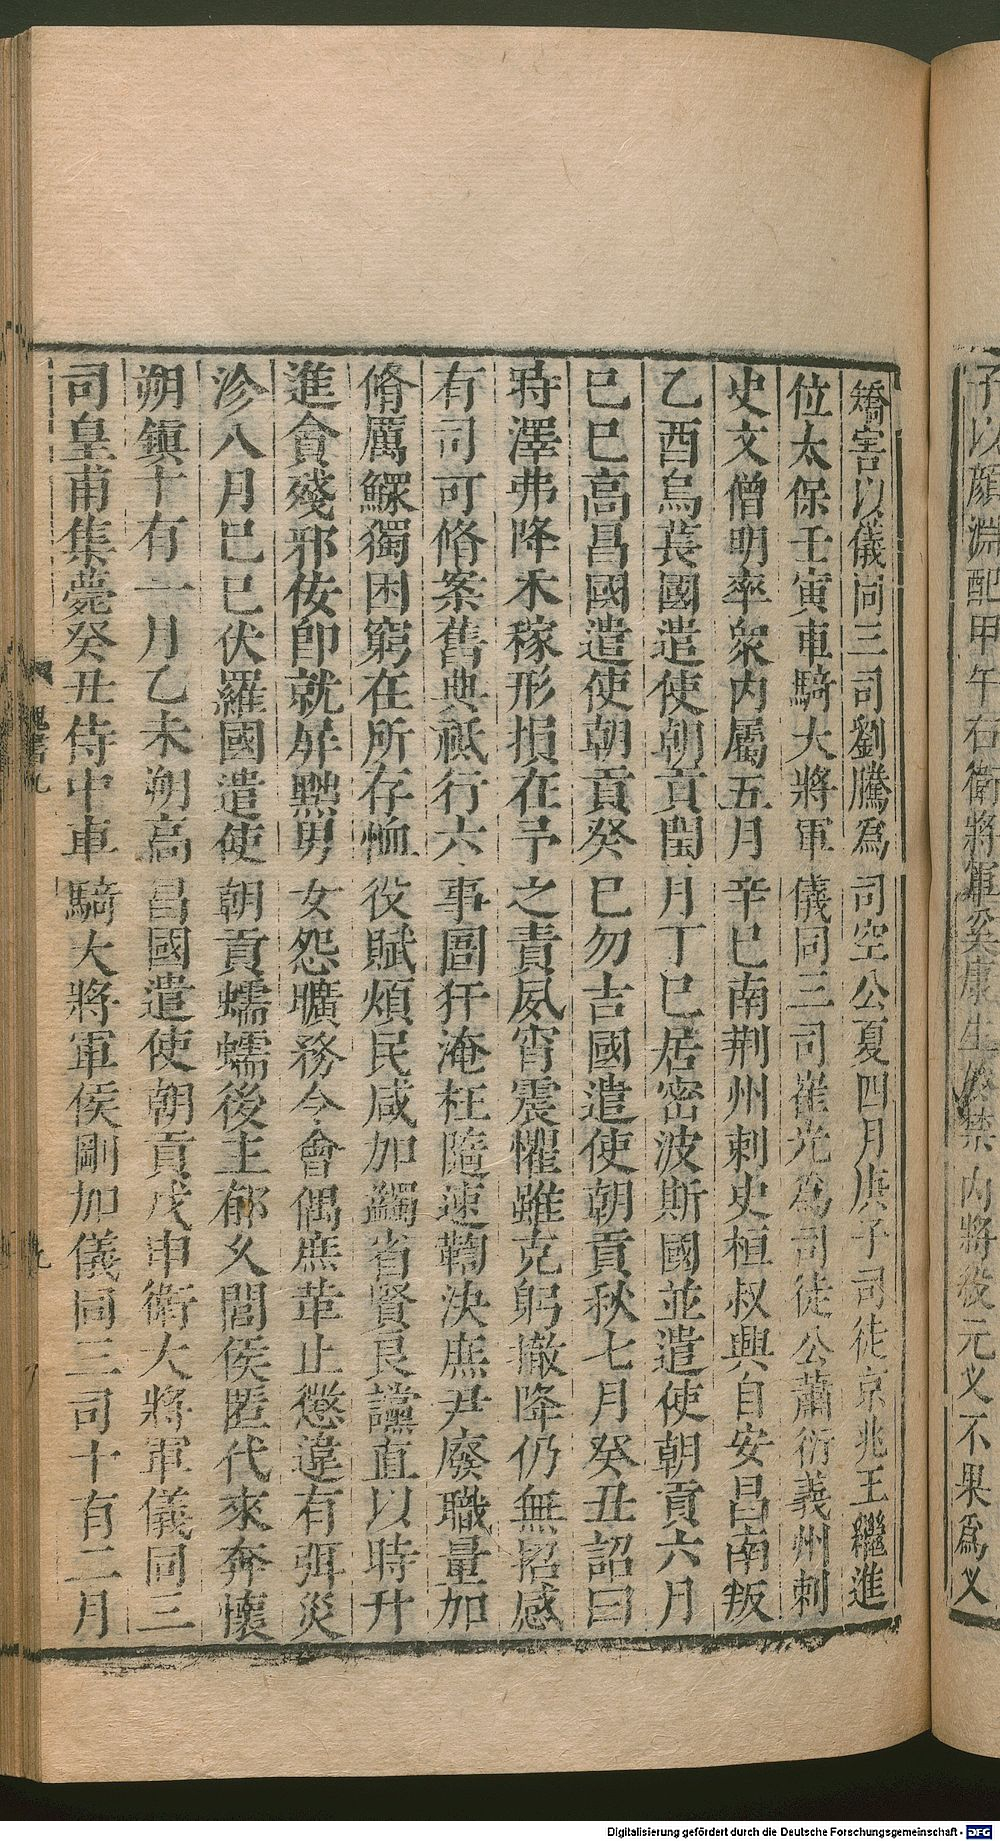 子以顏淵配甲午右衛將軍奚康生於禁內將殺元乂不果為乂
矯害以儀同三司劉騰為司空公夏四月庚子司徒京兆王繼進
位太保壬寅車騎大將軍儀同三司崔光為司徒公蕭衍義州刺
史文僧明率衆內屬五月辛巳南荆州刺史桓叔興自安昌南叛
乙酉烏萇國遣使朝貢閏月丁巳居密波斯國並遣使朝貢六月
己巳高昌國遣使朝貢癸巳勿吉國遣使朝貢秋七月癸丑詔曰
時澤弗降禾稼形損在予之責夙宵震懼雖克躬撤降仍無招感
有司可脩案舊典祗行六事圄犴淹枉隨速鞫決庶尹廢職量加
脩厲鰥獨困窮在所存恤役賦煩民咸加蠲省賢良讜直以時升
進貪殘邪佞即就屏黜男女怨曠務令會偶庶革止懲違有弭災
沴八月己巳伏羅國遣使朝貢蠕蠕後主郁久閭侯匿代來奔懷
朔鎮十有一月乙未朔高昌國遣使朝貢戊申衛大將軍儀同三
司皇甫集薨癸丑侍中車騎大將軍侯剛加儀同三司十有二月
魏書九
九
Digitalisierung gefördert durch die Deutsche Forschungsgemeinschaft - DFG